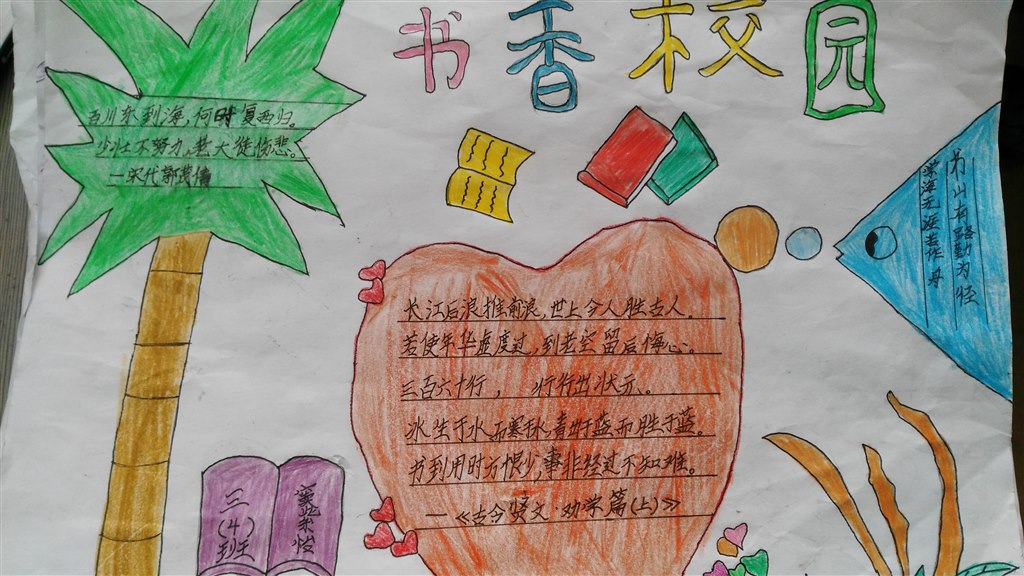 书香校园
百川东到海,何时复西归。
少壮不努力,老大徒伤悲。
—宋代郭茂倩
书山有路勤为径
学海无涯苦作舟
长江后浪推前浪,世上今人胜古人。
若使年华虚度过,到老空留后悔心。
三百六十行,行行出状元。
冰生于水而寒于水,青出于蓝而胜于蓝。
书到用时方恨少,事非经过不知难。
—《古今贤文·劝学篇(上)》
三
(4)
班